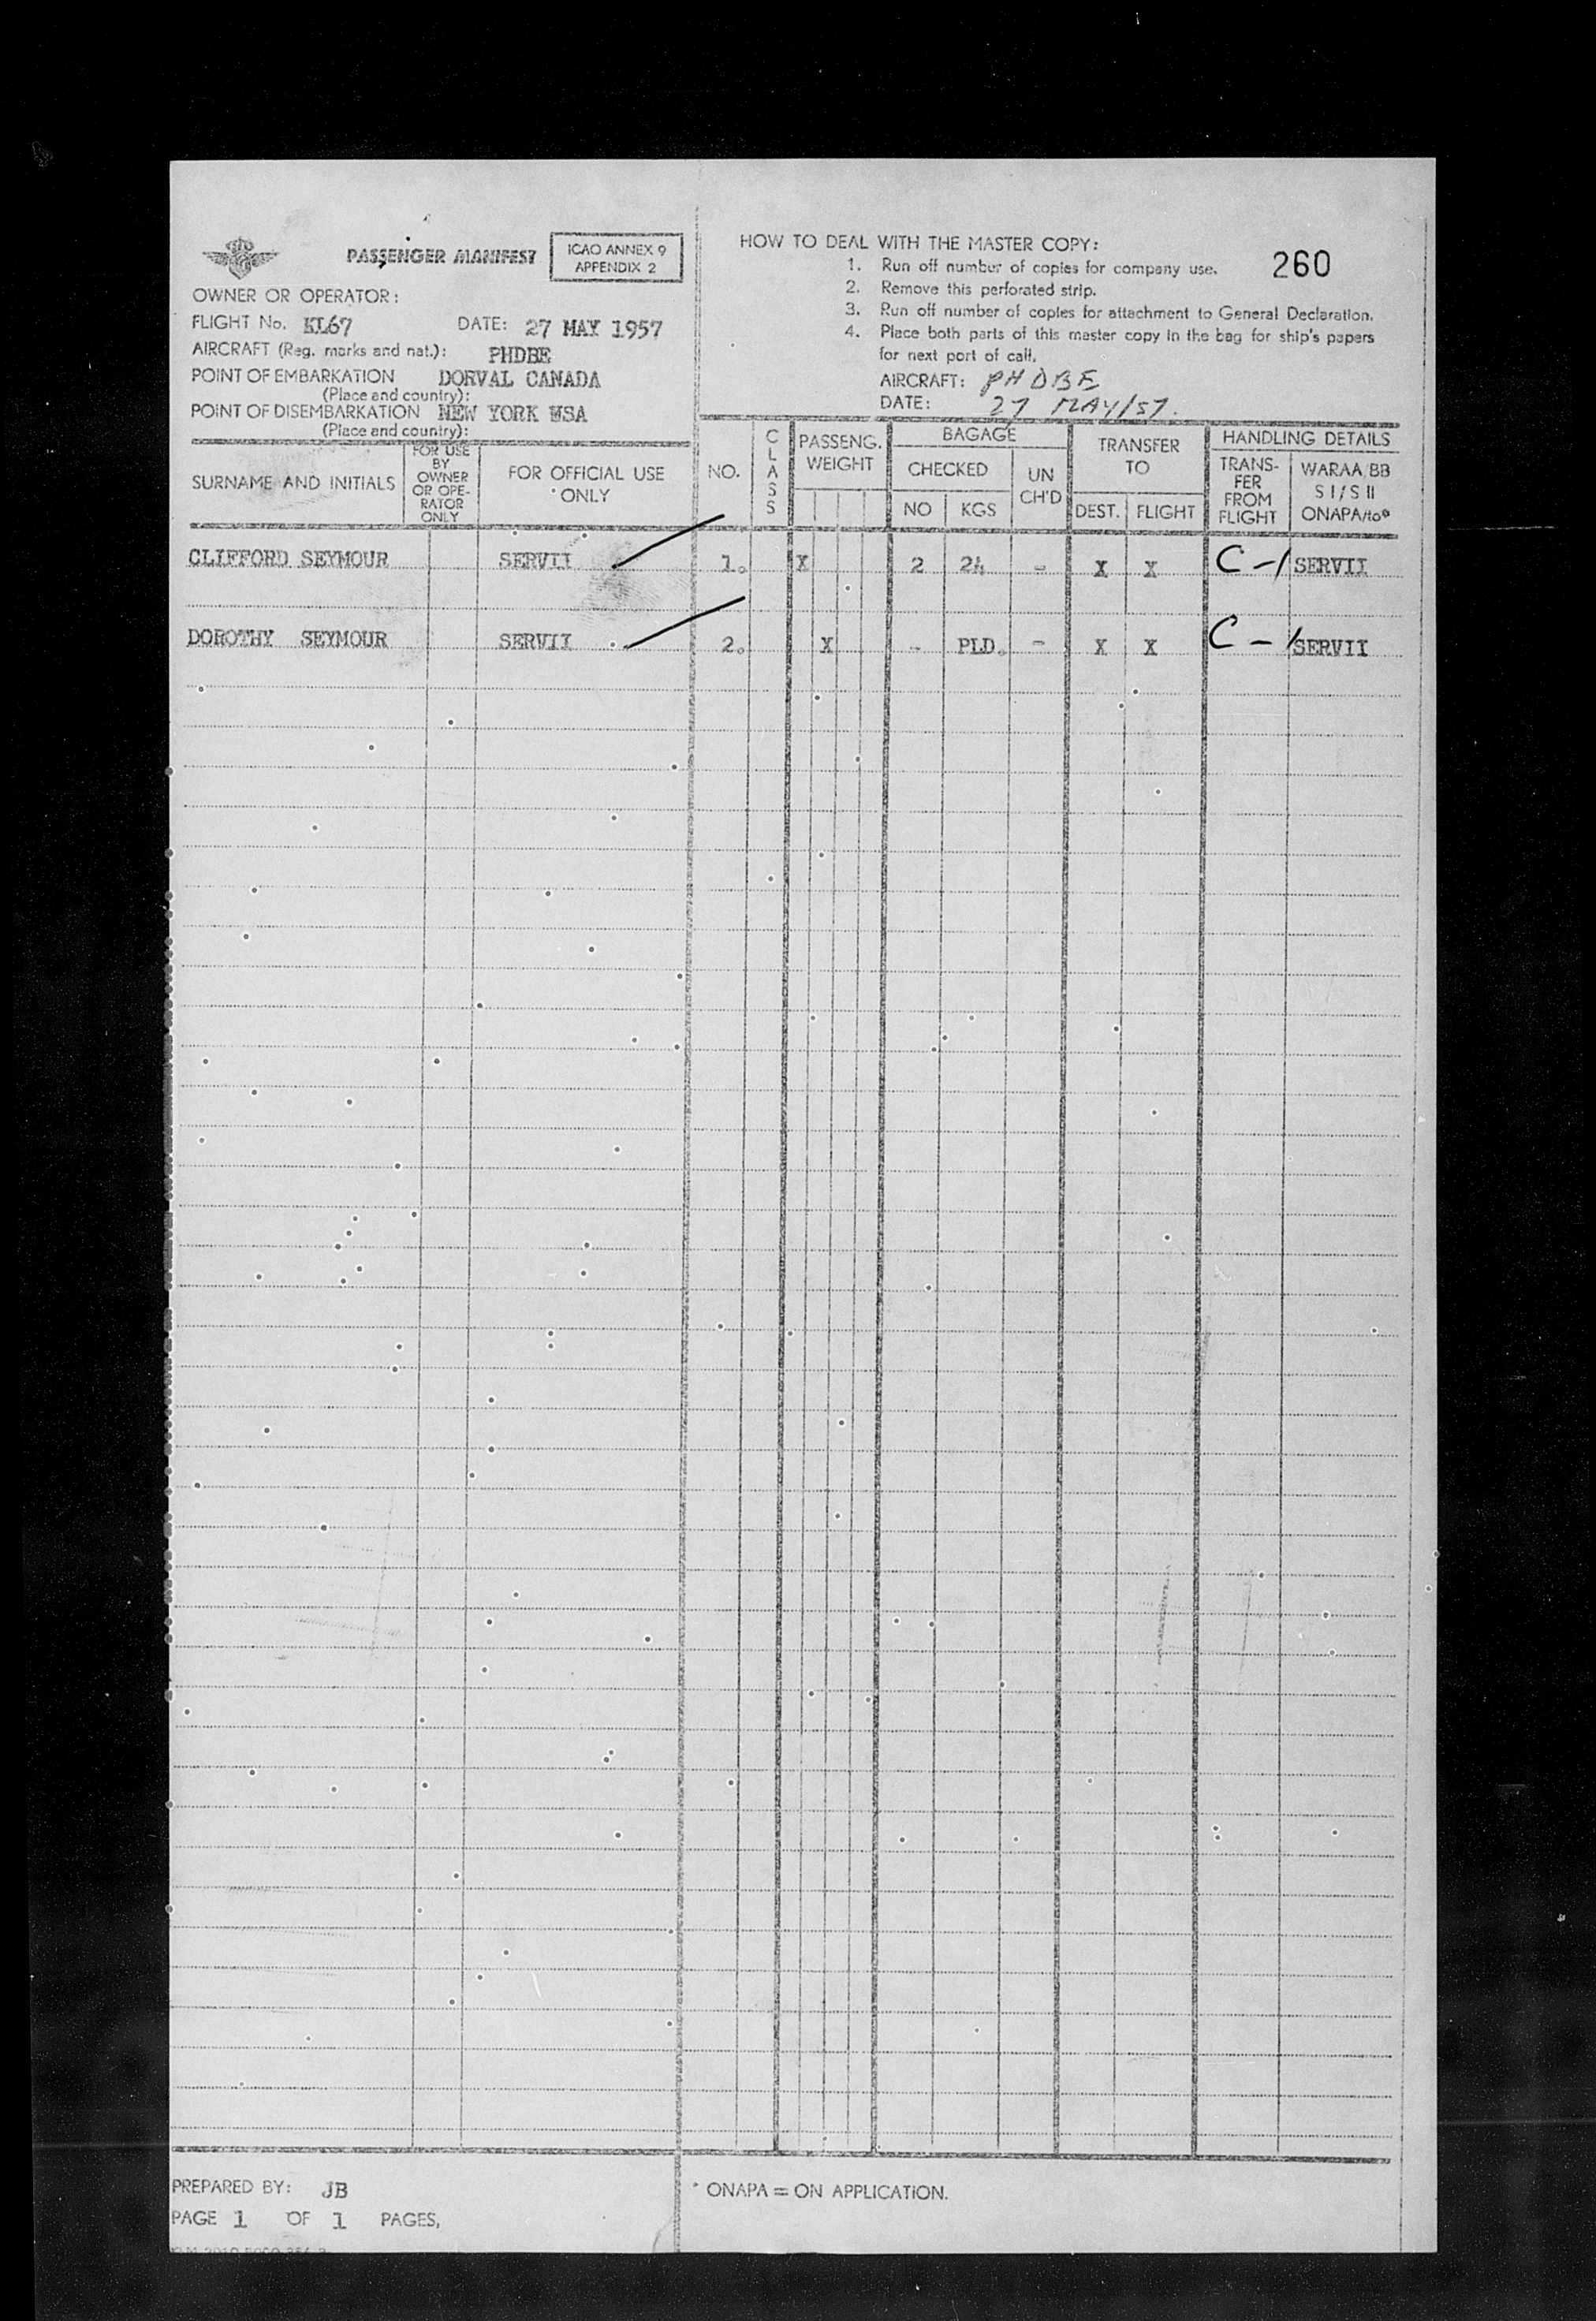 PASSENGER MANIFEST
ICAO ANNEX 9
APPENDIX 2
OWNER OR OPERATOR:
FLIGHT No. KL67 DATE: 27 MAY 1957
AIRCRAFT (Reg. marks and nat.): PHDBE
POINT OF EMBARKATION DORVAL CANADA
(Place and country):
POINT OF DISEMBARKATION NEW YORK USA
(Place and country):
HOW TO DEAL WITH THE MASTER COPY:
260
1. Run off number of copies for company use.
2. Remove this perforated strip.
3. Run off number of copies for attachment to General Declaration.
4. Place both parts of this master copy in the bag for ship's papers
for next port of call.
AIRCRAFT: PHDBE
DATE: 27 MAY/57.
SURNAME AND INITIALS
FOR USE
BY
OWNER
OR OPE-
RATOR
ONLY
FOR OFFICIAL USE
ONLY
NO.
CLASS
PASSENG.
WEIGHT
BAGAGE
CHECKED
NO KGS
UN
CH'D
TRANSFER
TO
DEST. FLIGHT
HANDLING DETAILS
TRANS-
FER
FROM
FLIGHT
WARAA/BB
S I / S II
ONAPA/to*
CLIFFORD SEYMOUR SERVII 1. X 2 24 - X X C-1 SERVII
DOROTHY SEYMOUR SERVII 2. X - PLD. - X X C-1 SERVII
PREPARED BY: JB
PAGE 1 OF 1 PAGES,
* ONAPA = ON APPLICATION.